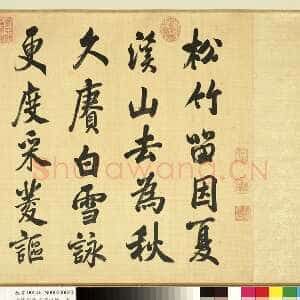 松竹留因夏
溪山去為秋
久賡白雪詠
更度采菱謳
Shufawang.CN